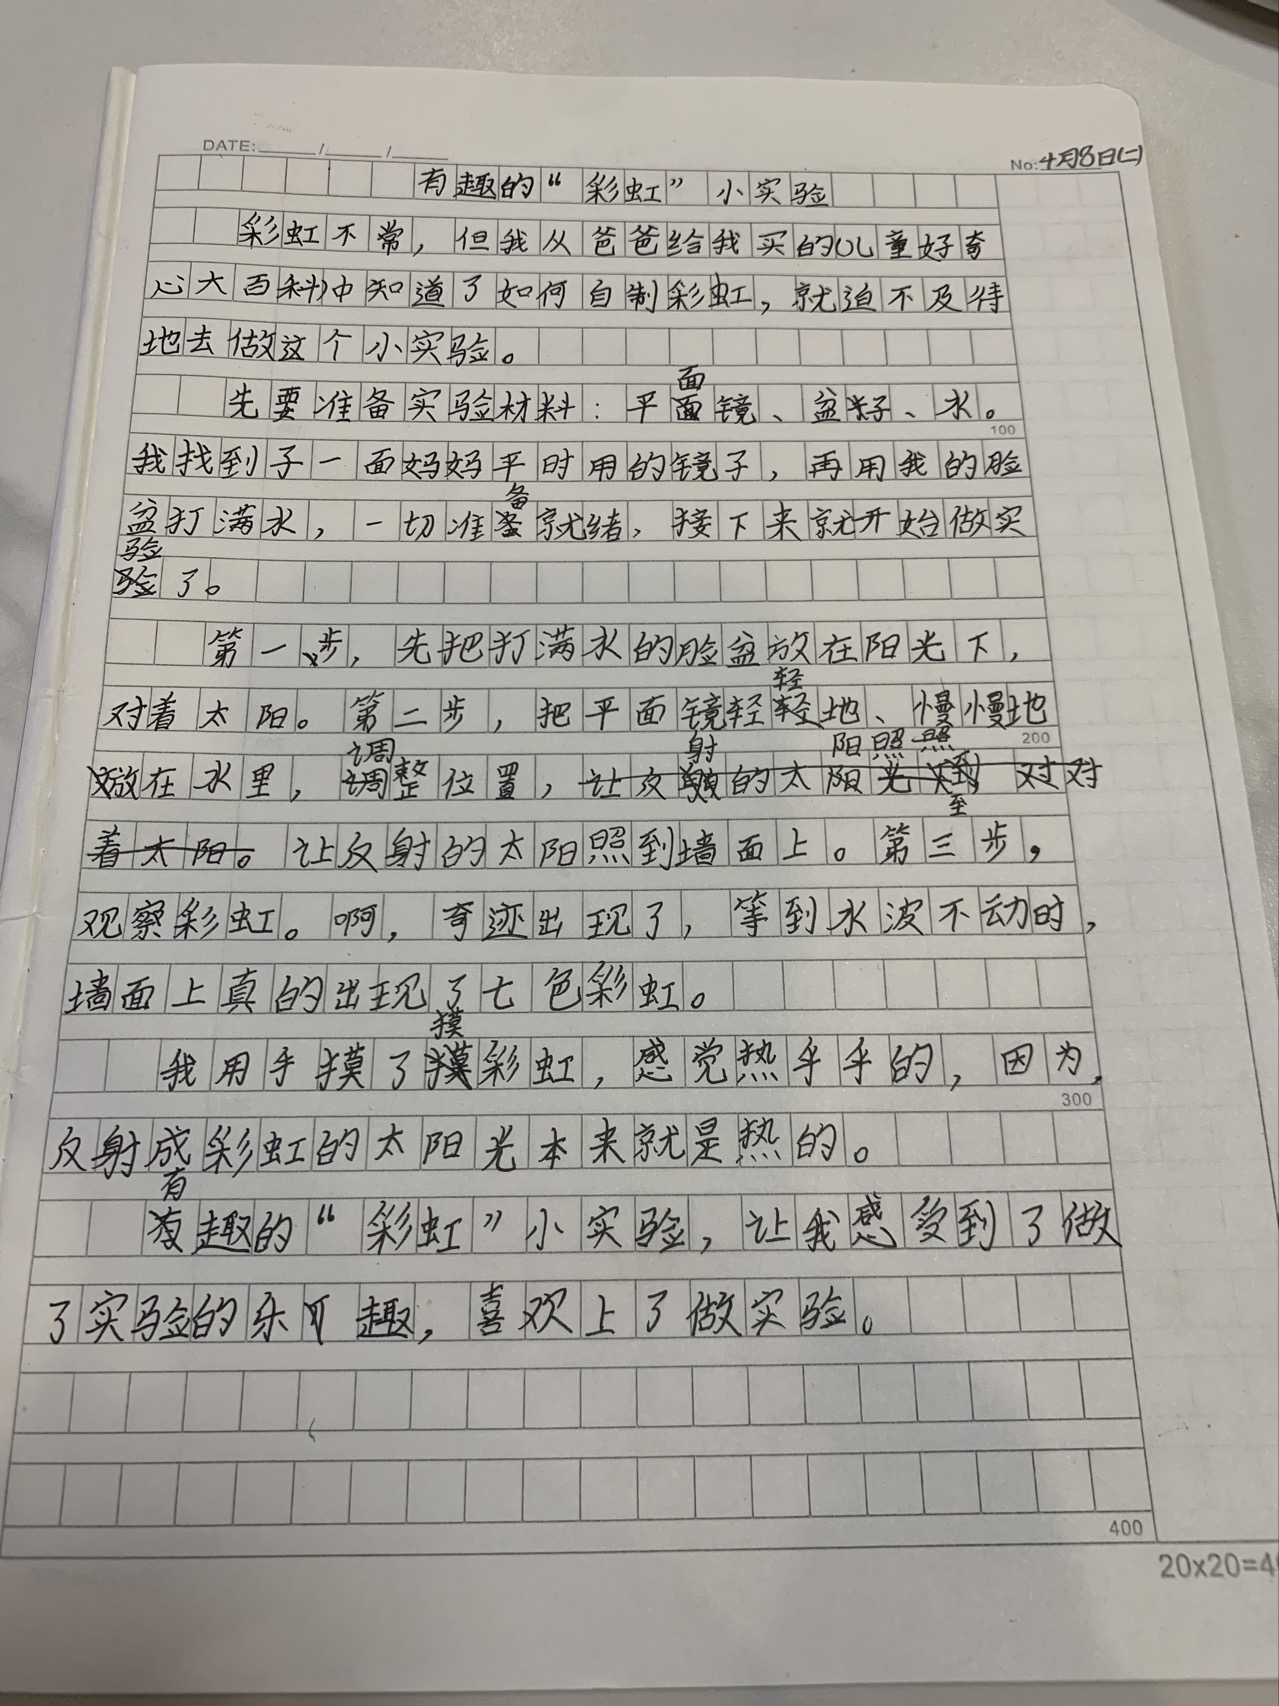 DATE: / /
No: 4月8日(二)
有趣的“彩虹”小实验
彩虹不常，但我从爸爸给我买的儿童好奇
心大百科中知道了如何自制彩虹，就迫不及待
地去做这个小实验。
先要准备实验材料：平面镜、盆籽、水。
100
我找到子一面妈妈平时用的镜子，再用我的脸
盆打满水，一切准备就绪，接下来就开始做实
验了。
第一步，先把打满水的脸盆放在阳光下，
对着太阳。第二步，把平面镜轻轻地、慢慢地
200
放在水里，调整位置，让反射的太阳光 对对
着太阳。让反射的太阳照到墙面上。第三步，
观察彩虹。啊，奇迹出现了，等到水波不动时，
墙面上真的出现了七色彩虹。
我用手摸了摸彩虹，感觉热乎乎的，因为，
300
反射成彩虹的太阳光本来就是热的。
有趣的“彩虹”小实验，让我感受到了做
了实验的乐趣，喜欢上了做实验。
400
20x20=4